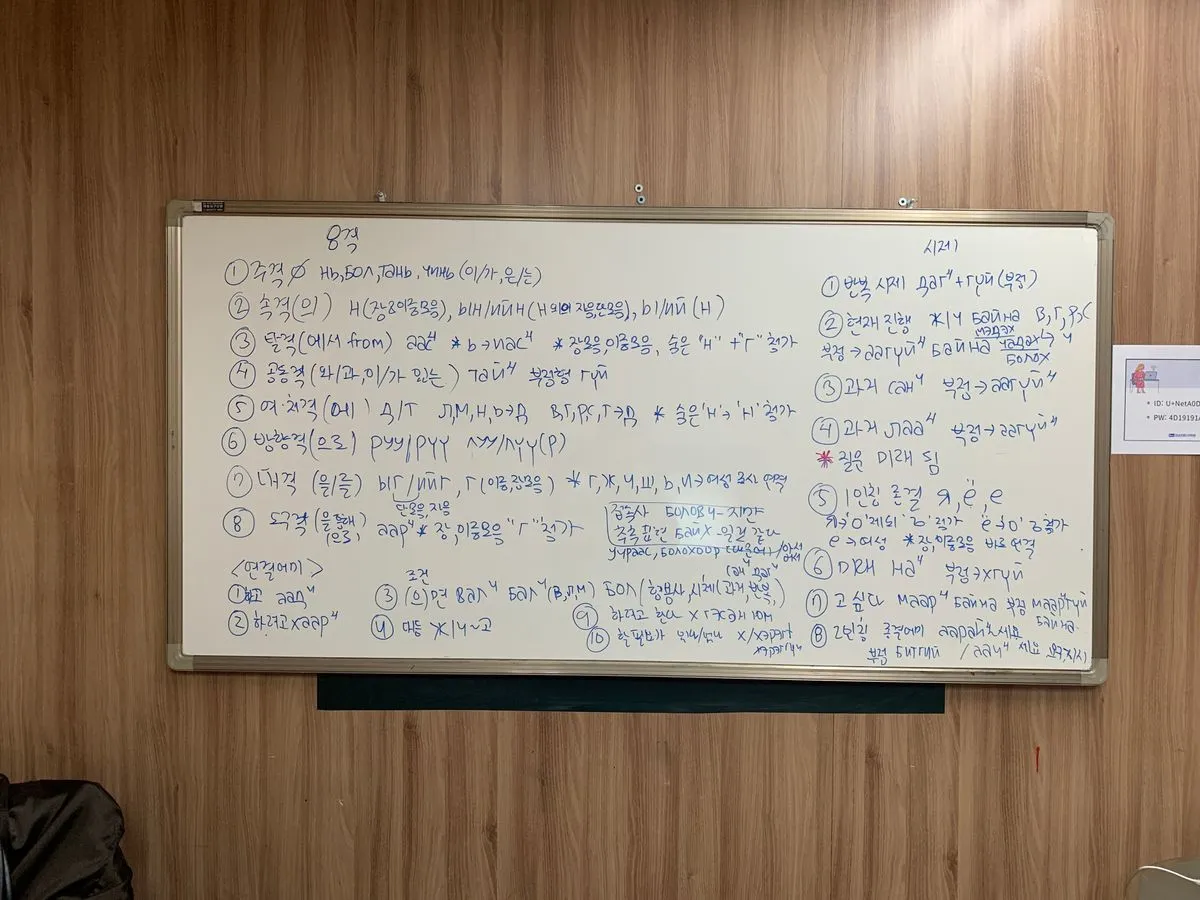 8격
① 주격 ∅ нь, БОЛ, тань, чинь (이/가, 은/는)
② 속격(의) Н(장모이중모음), ын/ийн(Н외의 자음,단모음), ы/ий (Н)
③ 탈격(에서 from) аас⁴ * ь→иас⁴ * 장모음,이중모음, 숨은 "Н" + "Г" 첨가
④ 공동격(와/과, 이/가 있는) тай⁴ 부정형 гүй
⑤ 여·처격(에) Д/Т Л,М,Н,Ь→Д В,Г,Р,С,Г→Д * 숨은'Н'→'Н'첨가
⑥ 방향격(으로) руу/рүү луу/лүү(Р)
⑦ 대격 (을/를) ыг/ийг, г(이중,장모음) * Г,Ж,Ч,Ш,Ь,И→여성
단모음,자음
⑧ 도구격(을 통해, 으로, аар⁴ * 장,이중모음 "Г" 첨가
접속사 БОЛОВЧ-지만
추측표현 байх-일것 같다
учраас, болохоор
сан⁴ даг⁴
<연결어미>
①하고 аад⁴
② 하려고 хаар⁴
조건
③ (으)면 вал⁴ бал⁴(В,Л,М) БОЛ(형용사,시제(과거,반복,)
④ 대등 Ж/Ч~고
⑨ 하려고 한다 х гэсэн юм
⑩ 할 필요가 있/없 х/хэрэгт
хэрэггүй
시제
① 반복 시제 даг⁴+гүй(부정)
② 현재 진행 Ж/Ч байна В,Г,Р,С
부정→аагүй⁴ байна мэдэх чадах болох ↳ч
③ 과거 сан⁴ 부정→аагүй⁴
④ 과거 лаа⁴ 부정→аагүй⁴
* 질문 미래 됨
⑤ 1인칭 종결 я, ё, е
я→'о'제외 'ъ' 첨가 ё→'о' ъ첨가
е→여성 *장,이중모음 바로연결
⑥ на⁴ 부정→хгүй
⑦ 고 싶다 маар⁴ байна 부정 мааргүй байна.
⑧ 2인칭 종결어미 аарай⁴세요
부정 битгий /аач⁴ 세요
ID: U+NetA0D
PW: 4D19191A